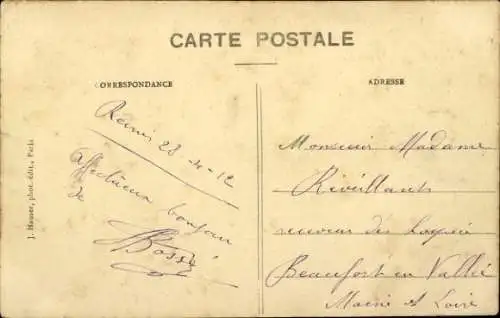 CARTE POSTALE
CORRESPONDANCE
ADRESSE
J. Hauser, phot. édit., Paris
Reims 28-4-12
affectueux bonjour
de
Bossé
Monsieur Madame
Réveillant
receveur des
Beaufort en Vallée
Maine et Loire